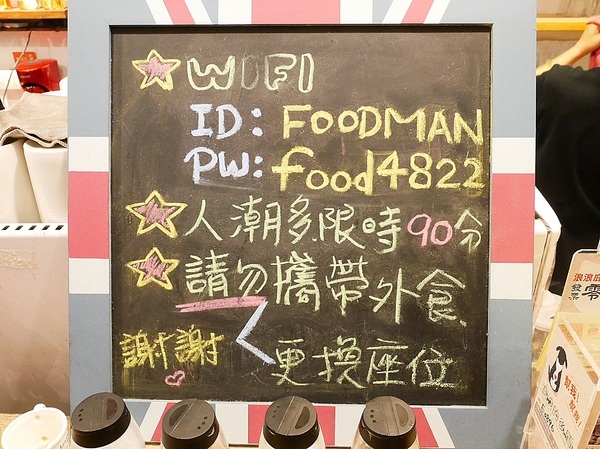 WIFI
ID: FOODMAN
PW: food4822
人潮多,限時90分
請勿攜帶外食、
更換座位
謝謝
浪浪
發票
零